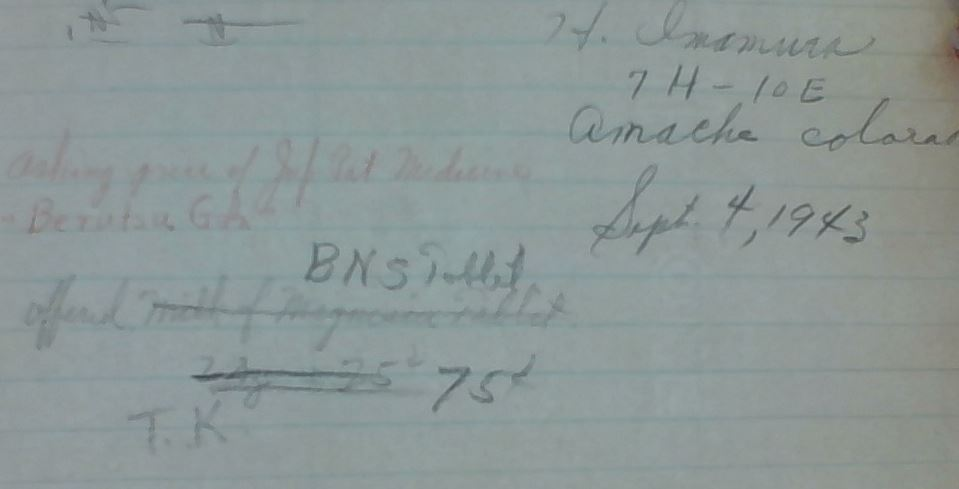 H. Imamura
7H-10E
Amache colora
Sept. 4, 1943
Asking price of Jap Pat Medicine
BNS Tablet
offered Milk of Magnesia tablet
75¢ 75¢
T.K